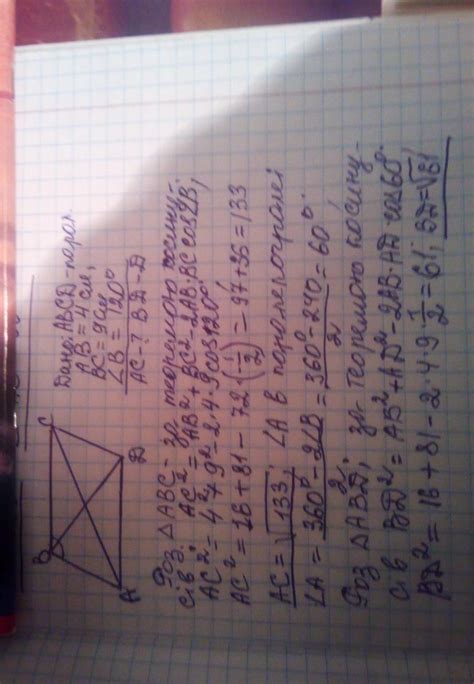 B C
A D
Дано: ABCD - парал.
AB = 4 см,
BC = 9 см
∠B = 120°
AC - ? BD - D
Роз ΔABC - за теоремою косину-
сів: AC² = AB² + BC² - 2AB·BC cos∠B;
AC² = 4² + 9² - 2·4·9 cos120°;
AC² = 16 + 81 - 72·(-1/2) = 97 + 36 = 133
AC = √133; ∠A в паралелограмі
∠A = 360° - 2∠B / 2 = 360° - 240 / 2 = 60°.
Роз ΔABD, за теоремою косину-
сів BD² = AB² + AD² - 2AB·AD cos60°.
BD² = 16 + 81 - 2·4·9 1/2 = 61; BD = √61